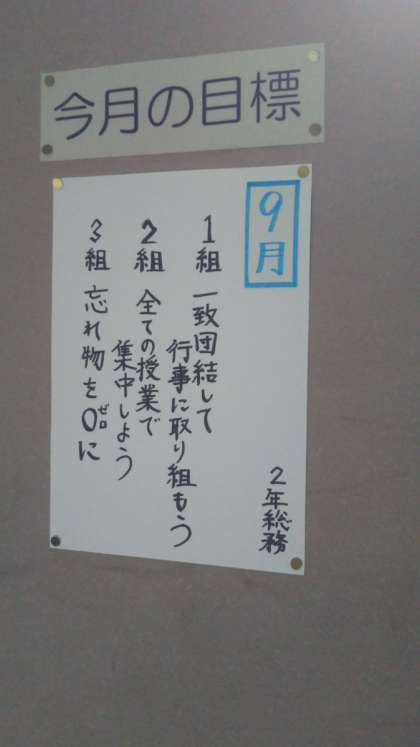 今月の目標
9月
1組 一致団結して
行事に取り組もう
2組 全ての授業で
集中しよう
3組 忘れ物を0に
ゼロ
2年総務